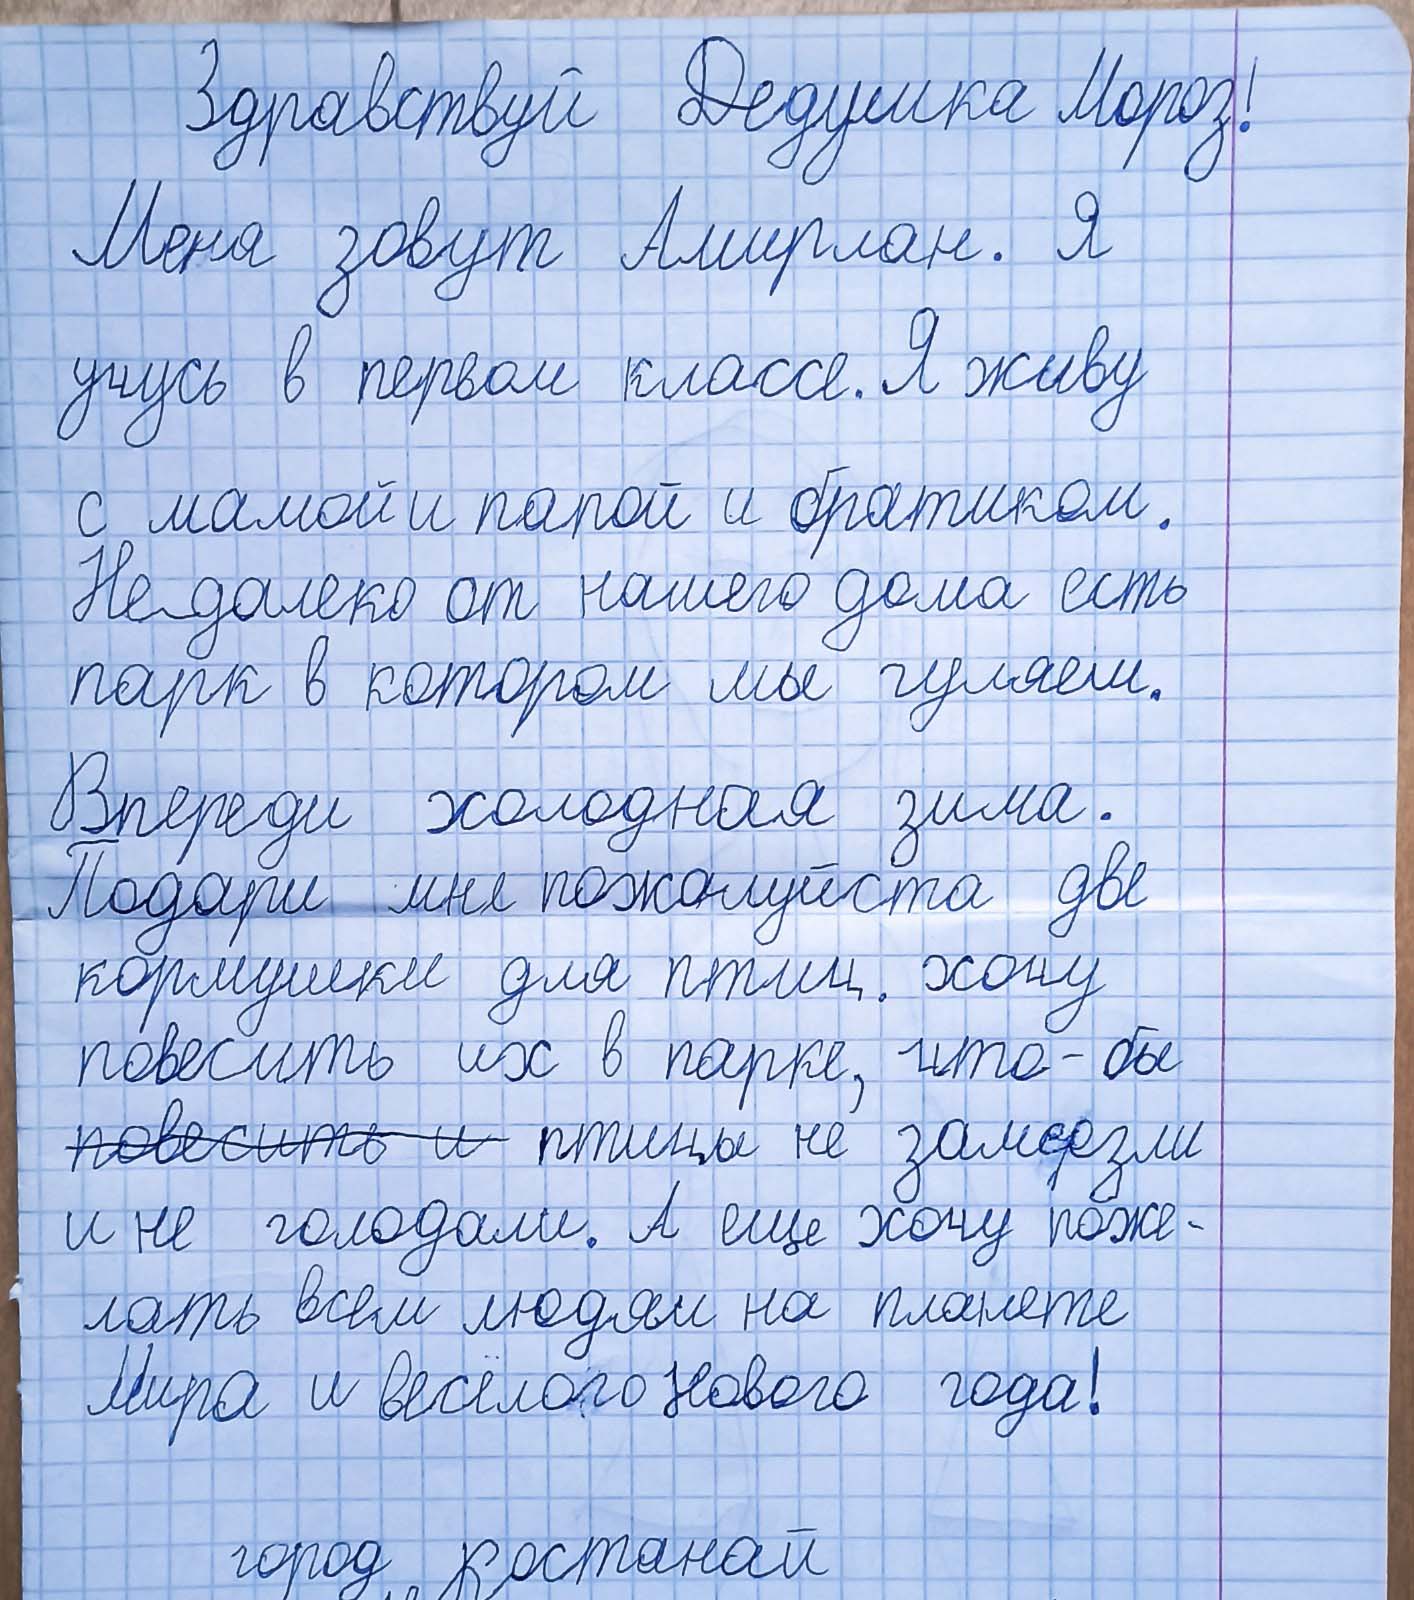 Здравствуй Дедушка Мороз!
Меня зовут Амирлан. Я
учусь в первом классе. Я живу
с мамой и папой и братиком.
Не далеко от нашего дома есть
парк в котором мы гуляем.
Впереди холодная зима.
Подари мне пожалуйста две
кормушки для птиц. хочу
повесить их в парке, что-бы
повесить и птицы не замерзли
и не голодали. А еще хочу поже-
лать всем людям на планете
Мира и весёлого Нового года!
город Костанай